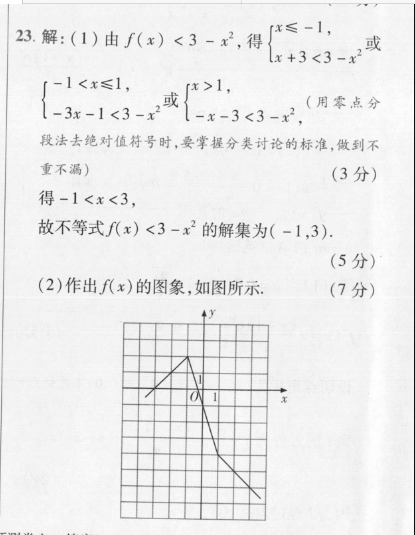 23. 解:(1)由 f(x) < 3 - x², 得 { x ≤ -1, x + 3 < 3 - x² 或
{ -1 < x ≤ 1, -3x - 1 < 3 - x² 或 { x > 1, -x - 3 < 3 - x², (用零点分
段法去绝对值符号时,要掌握分类讨论的标准,做到不
重不漏) (3 分)
得 -1 < x < 3,
故不等式 f(x) < 3 - x² 的解集为( -1,3).
(5 分)
(2)作出 f(x) 的图象,如图所示. (7 分)
y
1
O 1 x